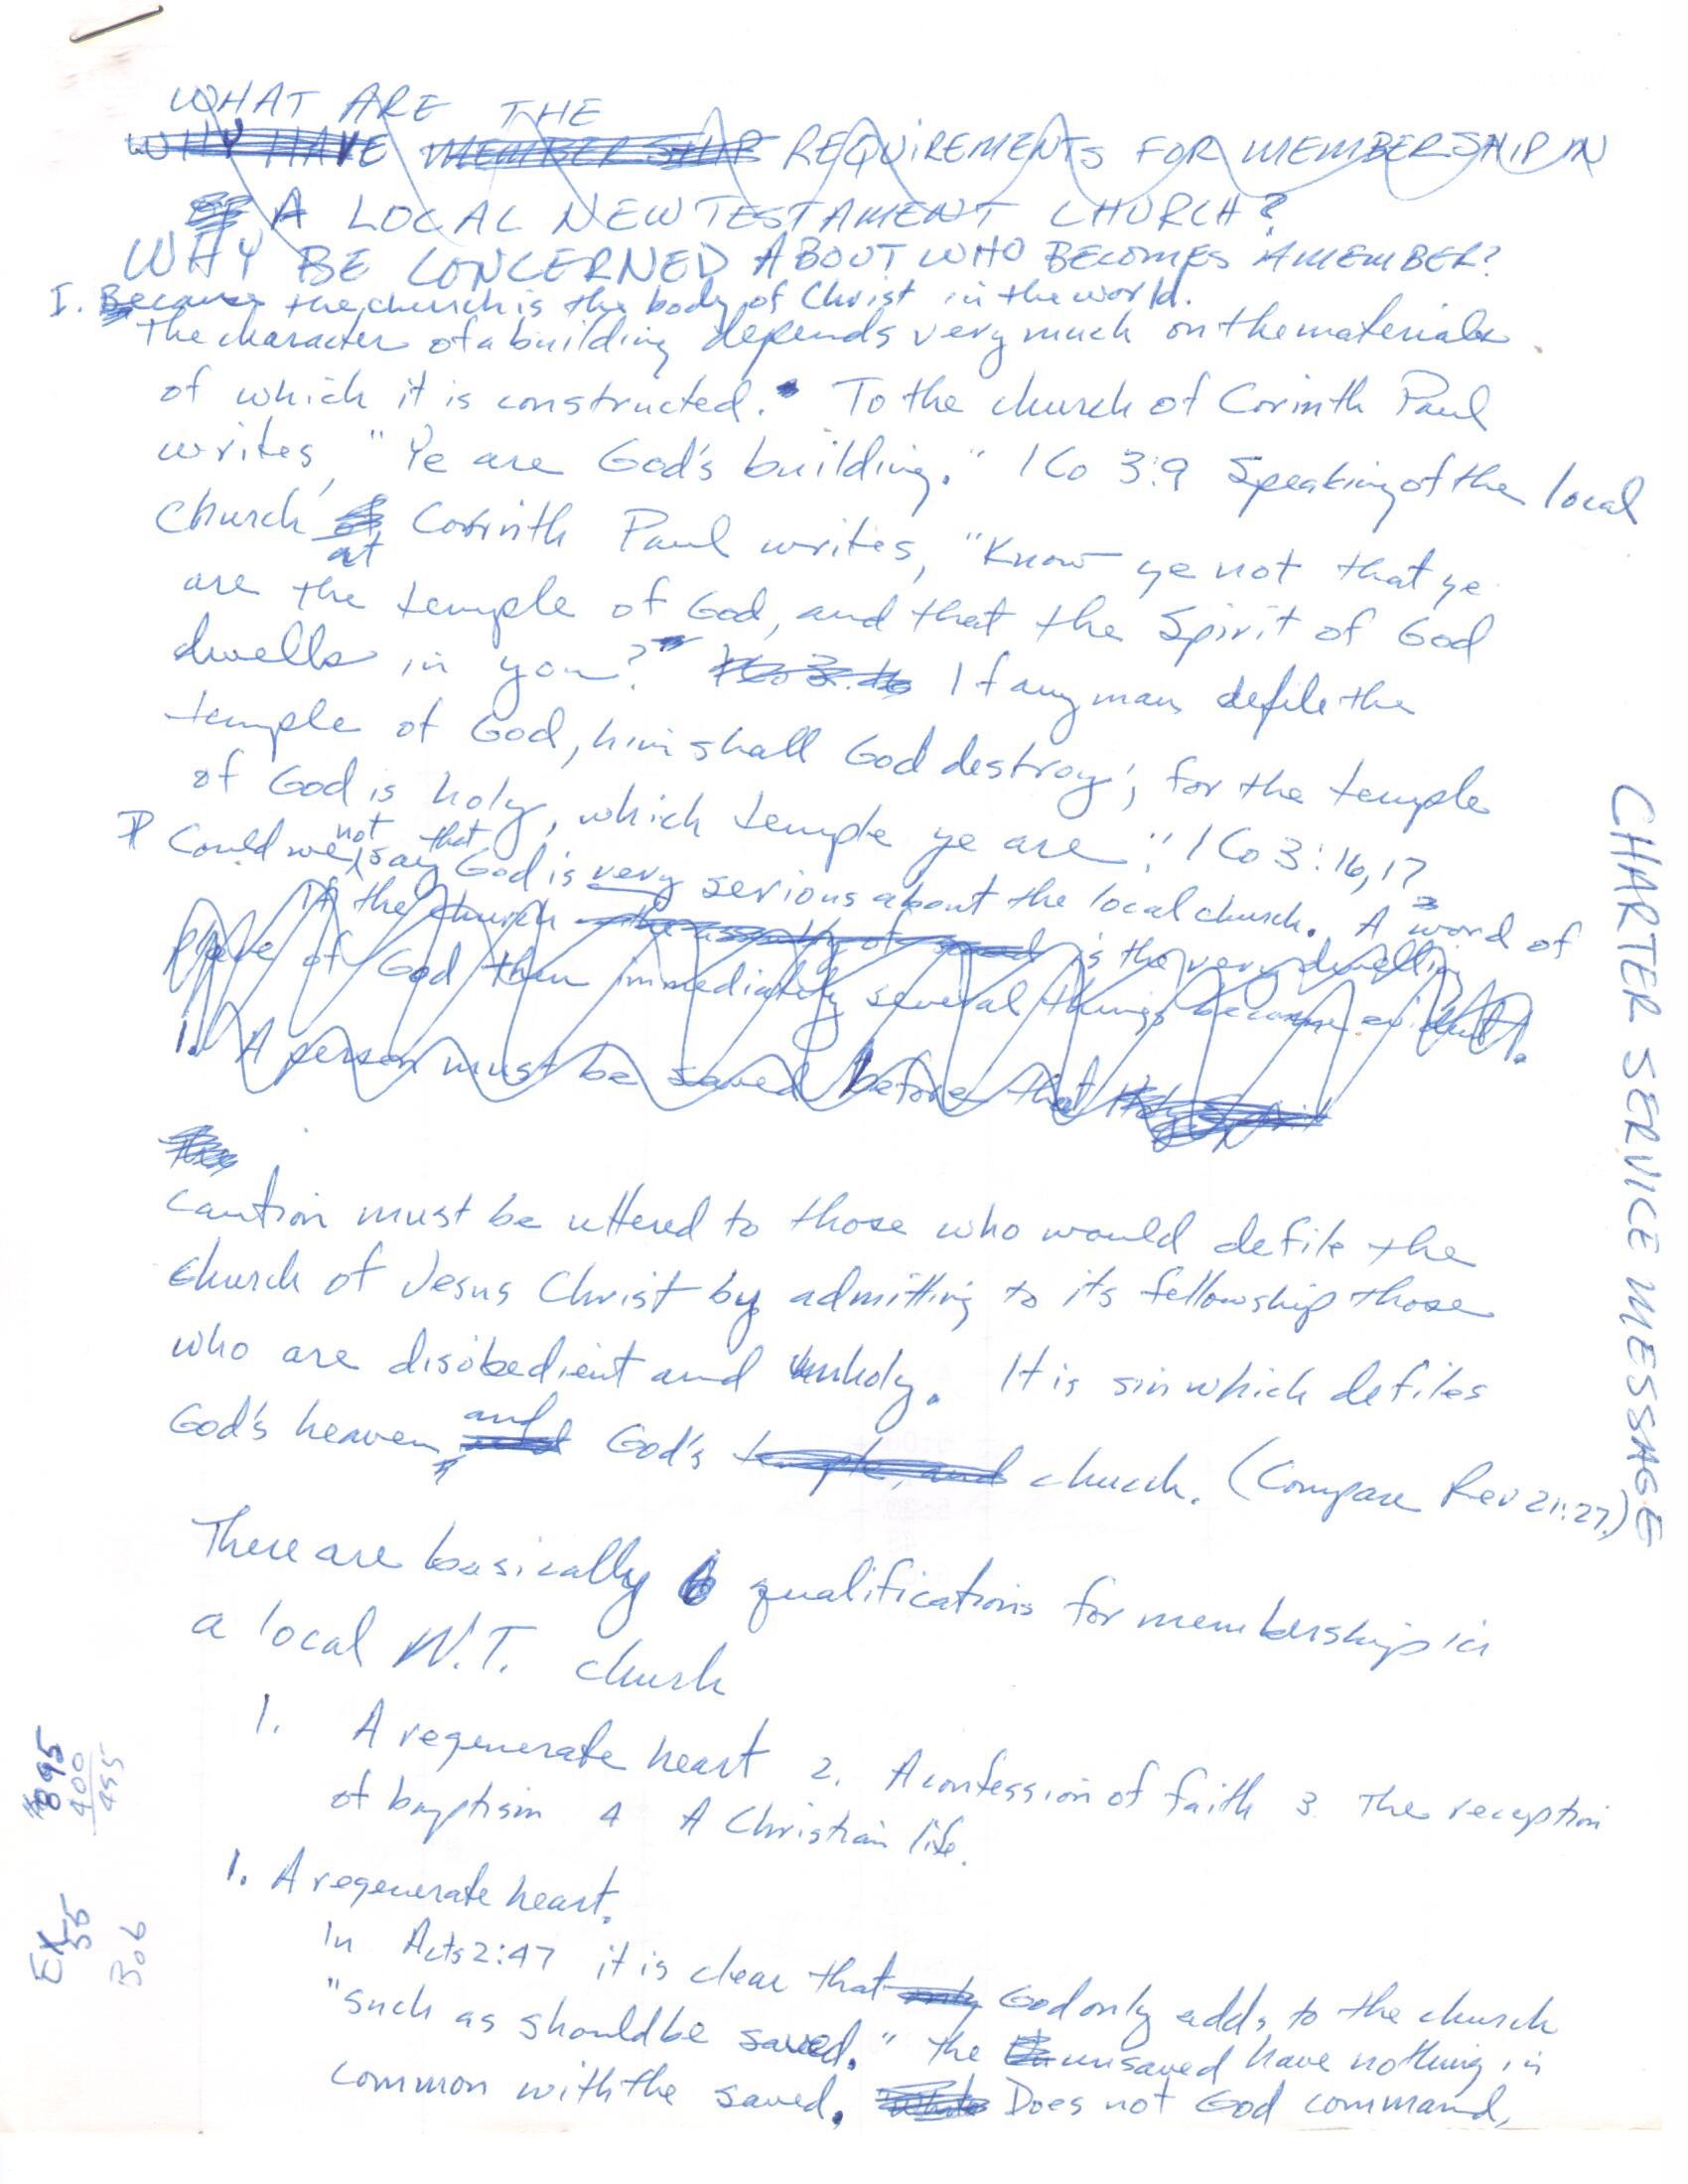 WHAT ARE THE
WHY HAVE MEMBERSHIP REQUIREMENTS FOR MEMBERSHIP IN
A LOCAL NEW TESTAMENT CHURCH?
WHY BE CONCERNED ABOUT WHO BECOMES A MEMBER?
I. Because the church is the body of Christ in the world.
The character of a building depends very much on the materials
of which it is constructed. To the church of Corinth Paul
writes, "Ye are God's building." 1 Co 3:9 Speaking of the local
church at Corinth Paul writes, "Know ye not that ye
are the temple of God, and that the Spirit of God
dwells in you? If any man defile the
temple of God, him shall God destroy; for the temple
of God is holy, which temple ye are." 1 Co 3:16,17
II Could we not say that God is very serious about the local church. A word of
If the church is the very dwelling
place of God then immediately several things become evident.
1. A person must be saved before that Holy Spirit
caution must be uttered to those who would defile the
church of Jesus Christ by admitting to its fellowship those
who are disobedient and unholy. It is sin which defiles
God's heaven, and God's temple, and church. (Compare Rev 21:27.)
There are basically qualifications for membership in
a local N.T. church
1. A regenerate heart 2. A confession of faith 3. The reception
of baptism 4 A Christian life.
1. A regenerate heart.
In Acts 2:47 it is clear that only God only adds to the church
"such as should be saved." The unsaved have nothing in
common with the saved. Does not God command,
CHARTER SERVICE MESSAGE
$895
400
495
EX 55
306